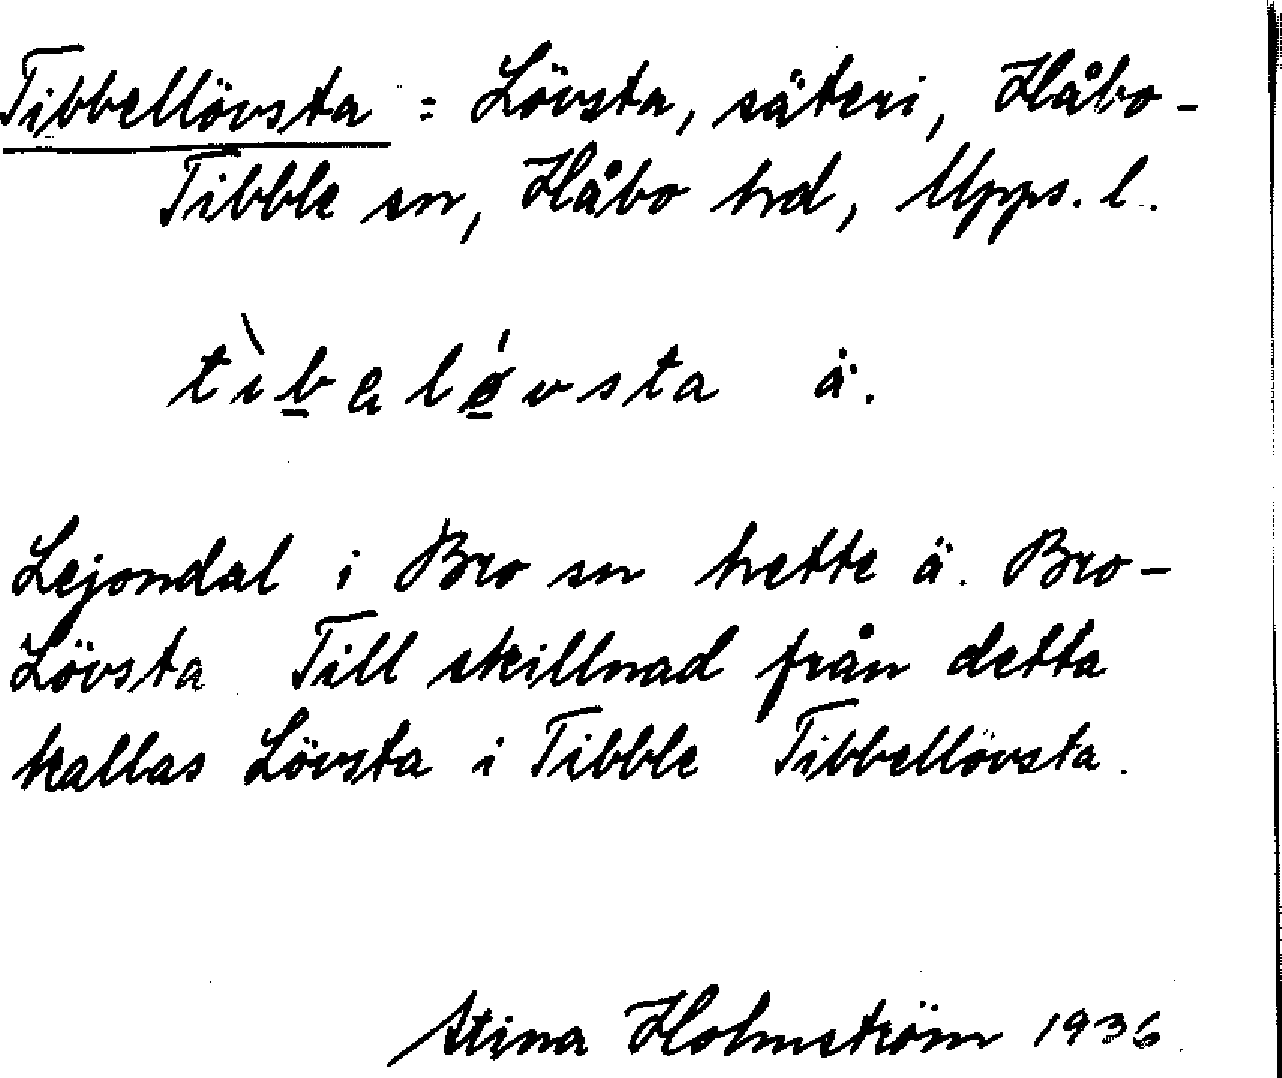 Tibbellövsta : Lövsta, säteri, Håbo-
Tibble sn, Håbo hd, Upps. l.
tìbelø̀vsta ä.
Lejondal i Bro sn hette ä. Bro-
Lövsta Till skillnad från detta
kallas Lövsta i Tibble Tibbellövsta.
Stina Holmström 1936